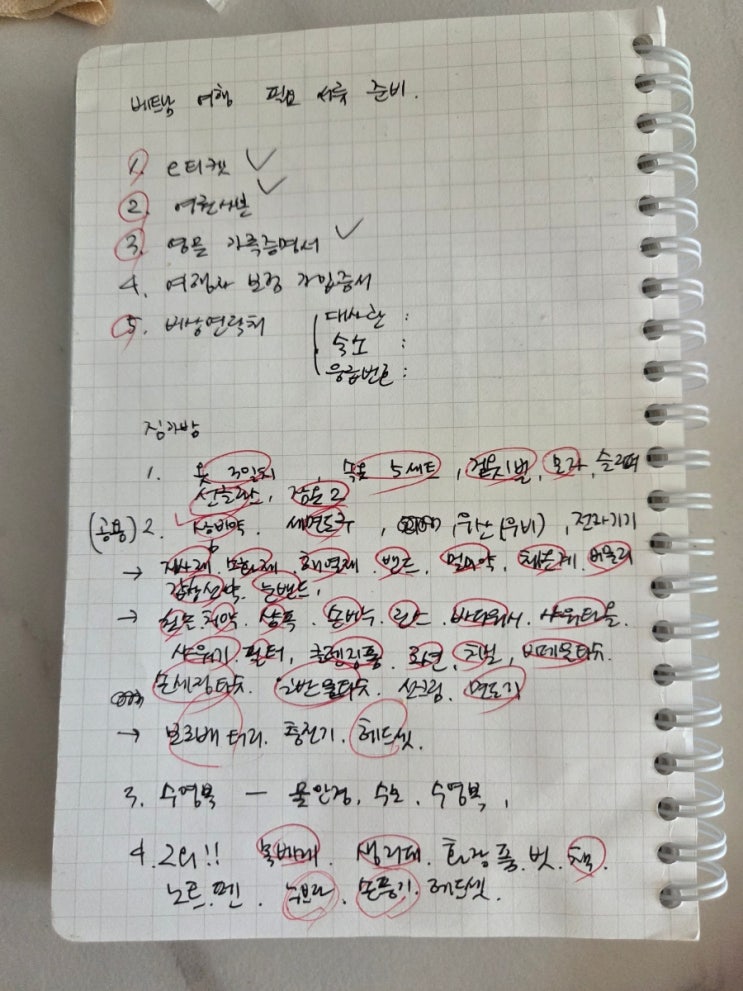 베트남 여행 필요 서류 준비.
1. e티켓 ✓
2. 여권사본 ✓
3. 영문 가족증명서 ✓
4. 여행자 보험 가입증서
5. 비상연락처 대사관 :
숙소 :
응급번호 :
짐가방
1. 옷 3일치, 속옷 5세트, 겉옷1벌, 모자, 슬리퍼
선글라스, 잠옷 2
(공용) 2. 상비약. 세면도구, 우산(우비), 전자기기
→ 지사제. 소화제. 해열제. 밴드. 멀미약. 체온계. 버물리
감기약.
→ 칫솔치약. 샴푸. 린스. 바디워시. 샤워타올.
샤워기 필터, 클렌징폼. 치실, 비데물티슈.
손세정티슈. 일반물티슈. 선크림. 면도기
→ 보조배터리. 충전기. 헤드셋.
3. 수영복 — 물안경. 수모. 수영복,
4. 그외!! 목베개. 생리대. 화장품. 빗. 책.
노트. 펜. 누브라. 손풍기. 헤드셋.